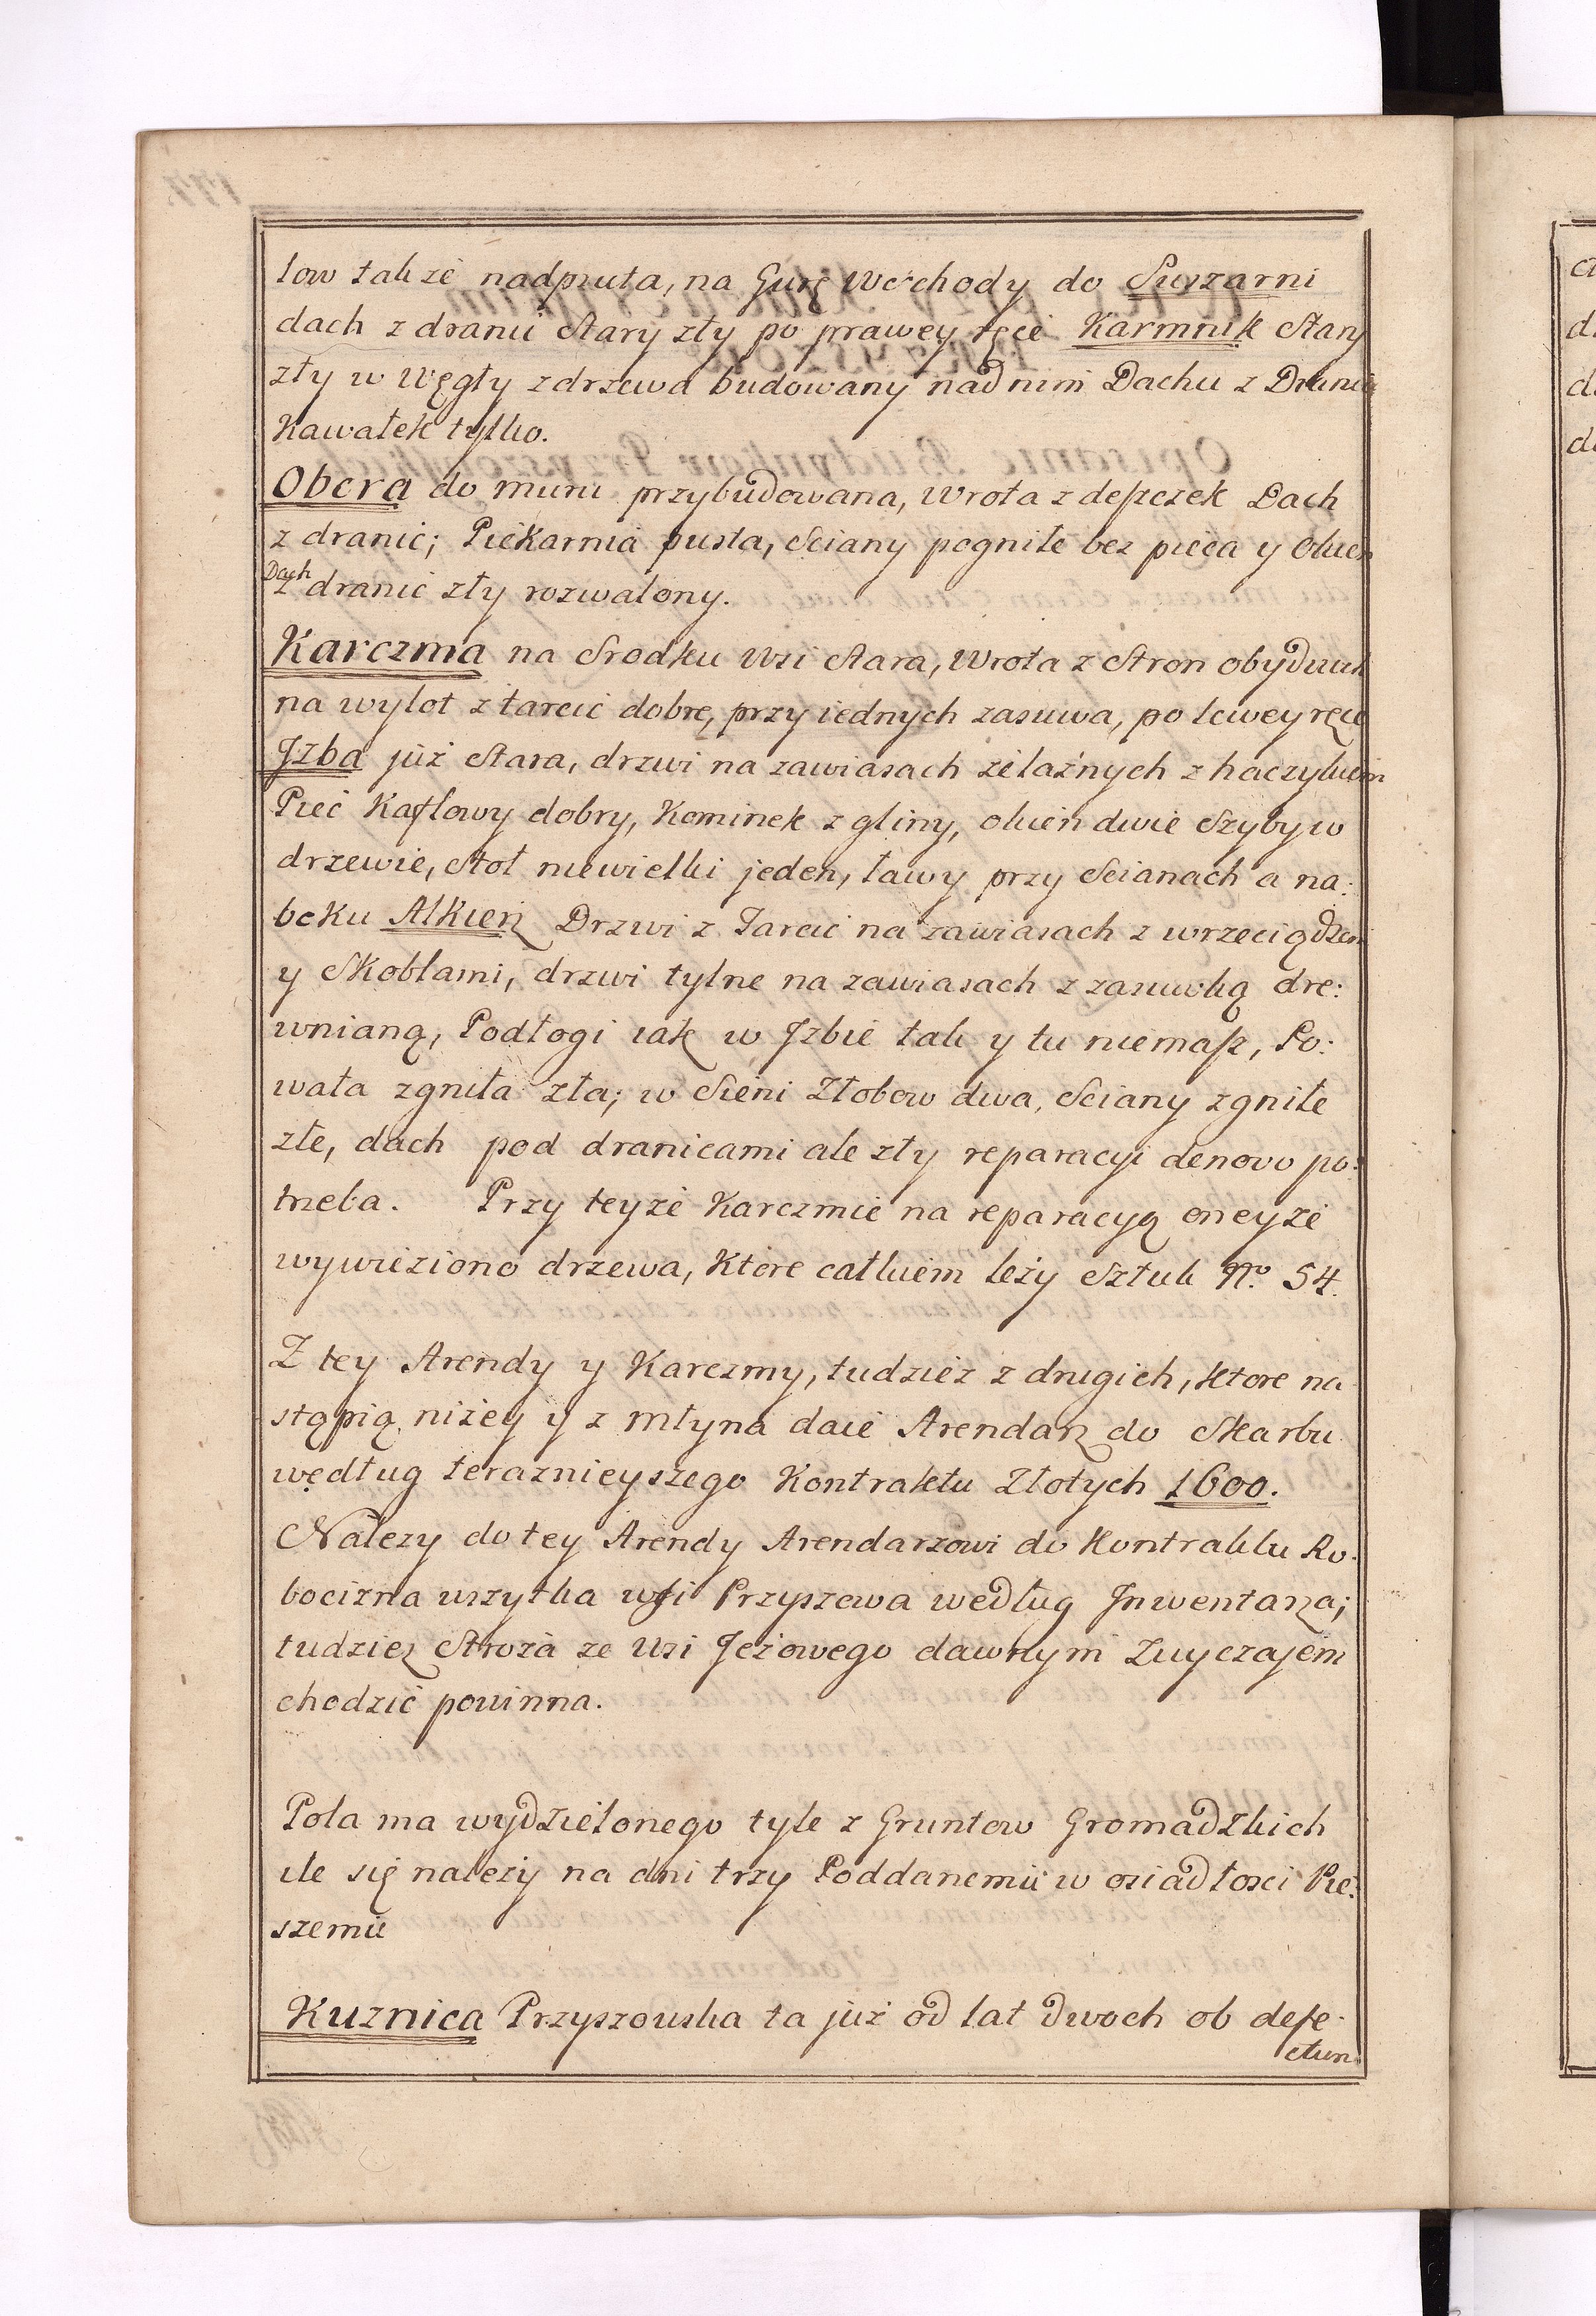 low takze nadpsuta, na Gurę Wschody do Suszarni
dach z dranic Stary zły po prawey ręce Karmnik Stary
zły w Węgły z drzewa budowany nad nim Dachu z Dranic
Kawałek tylko.
Obora do muru przybudowana, Wrota z deszczek Dach
z dranic; Piekarnia pusta, Sciany pogniłe bez pieca y Okien
Dach
z dranic zły rozwalony.
Karczma na Srodku Wsi Stara, Wrota z Stron obydwuch
na wylot z tarcic dobre, przy iednych zasuwa, po lewey ręce
Jzba już Stara, drzwi na zawiasach żelaznych z haczykiem
Piec Kaflowy dobry, Kominek z gliny, okien dwie Szyby w
drzewie, Stoł niewielki jeden, ławy przy Scianach a na:
boku Alkierz Drzwi z Tarcic na zawiasach z wrzeciądzem
y Skoblami, drzwi tylne na zawiasach z zasuwką dre:
wnianą, Podłogi iak w Jzbie tak y tu niemasz, Po:
wała zgniła zła; w Sieni Złobow dwa, Sciany zgniłe
złe, dach pod dranicami ale zły reparacyi denovo po:
trzeba. Przy teyże Karczmie na reparacyą oneyże
wywieziono drzewa, Ktore całkiem leży Sztuk No. 54.
Z tey Arendy y Karczmy, tudziez z drugich, ktore na
stąpią niżey y z młyna daie Arendarz do Skarbu
według teraznieyszego Kontraktu Złotych 1600.
Nalezy do tey Arendy Arendarzowi do Kontraktu Ro:
bocizna wszytka wsi Przyszowa według Jnwentarza;
tudziez Stroza ze Wsi Jeżowego dawnym Zwyczajem
chodzić powinna.
Pola ma wydzielonego tyle z Gruntow Gromadzkich
ile się należy na dni trzy Poddanemu w osiadłosci Pie:
szemu
Kuznica Przyszowska ta już od lat dwoch ob defe:
ctum